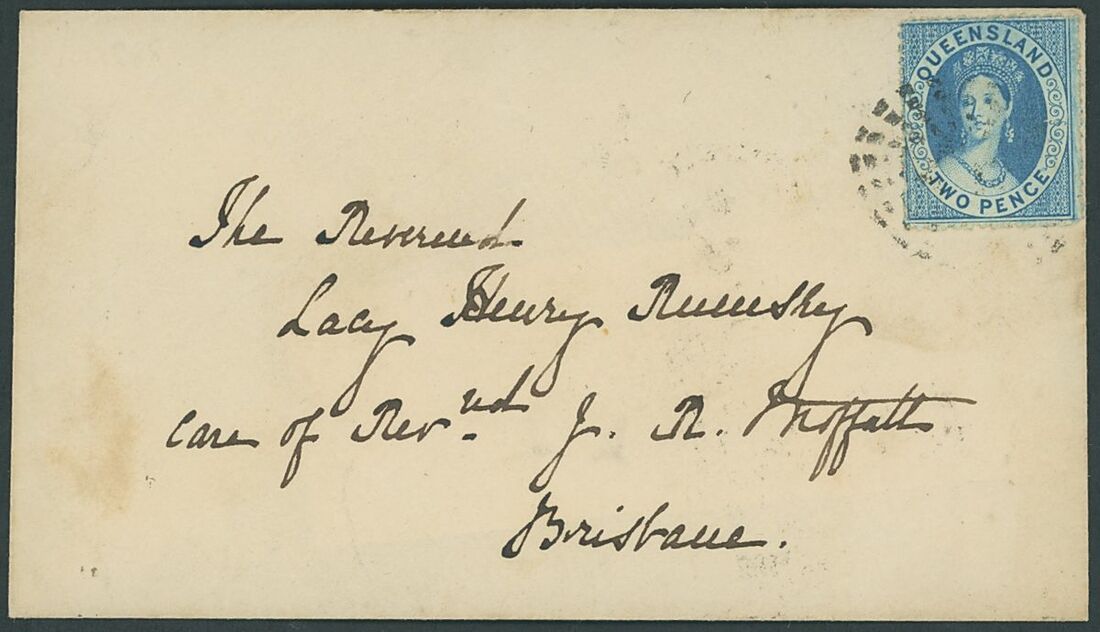 QUEENSLAND
TWO PENCE
The Reverend
Lacy Henry Rumsey
care of Rev.nd J. R. Moffatt
Brisbane.